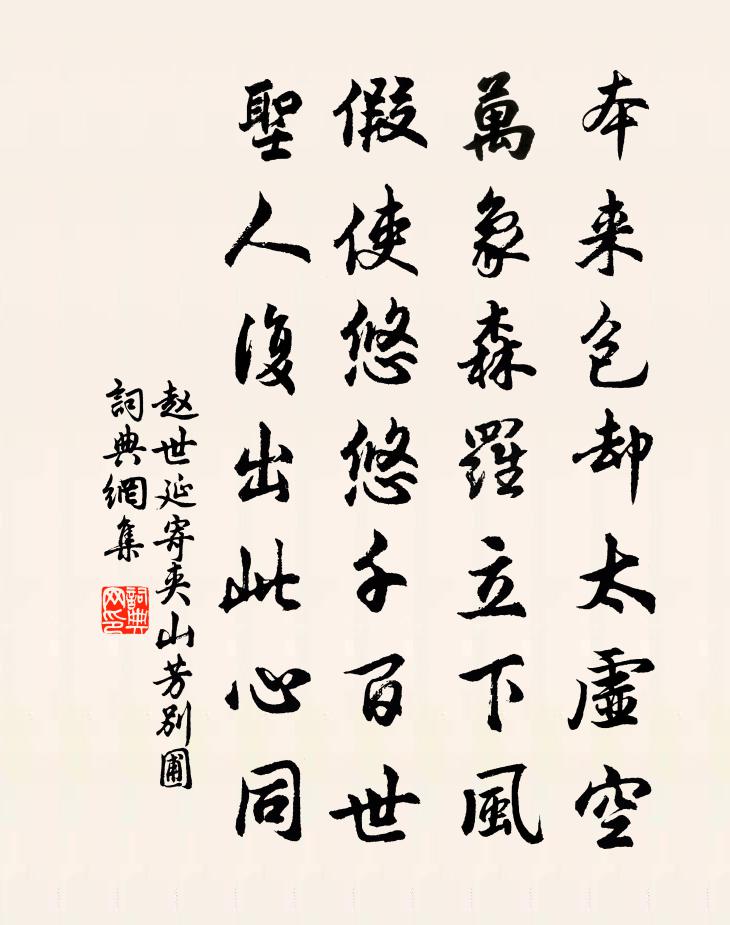 本来包却太虛空
萬象森羅立下風
假使悠悠千百世
聖人復出此心同
赵世延寄夹山芳别圃
詞典網集
詞典網印